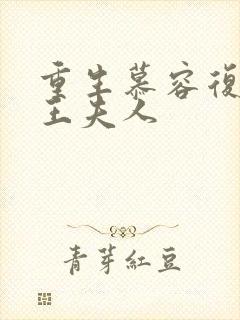 重生慕容復
王夫人
青芽紅豆